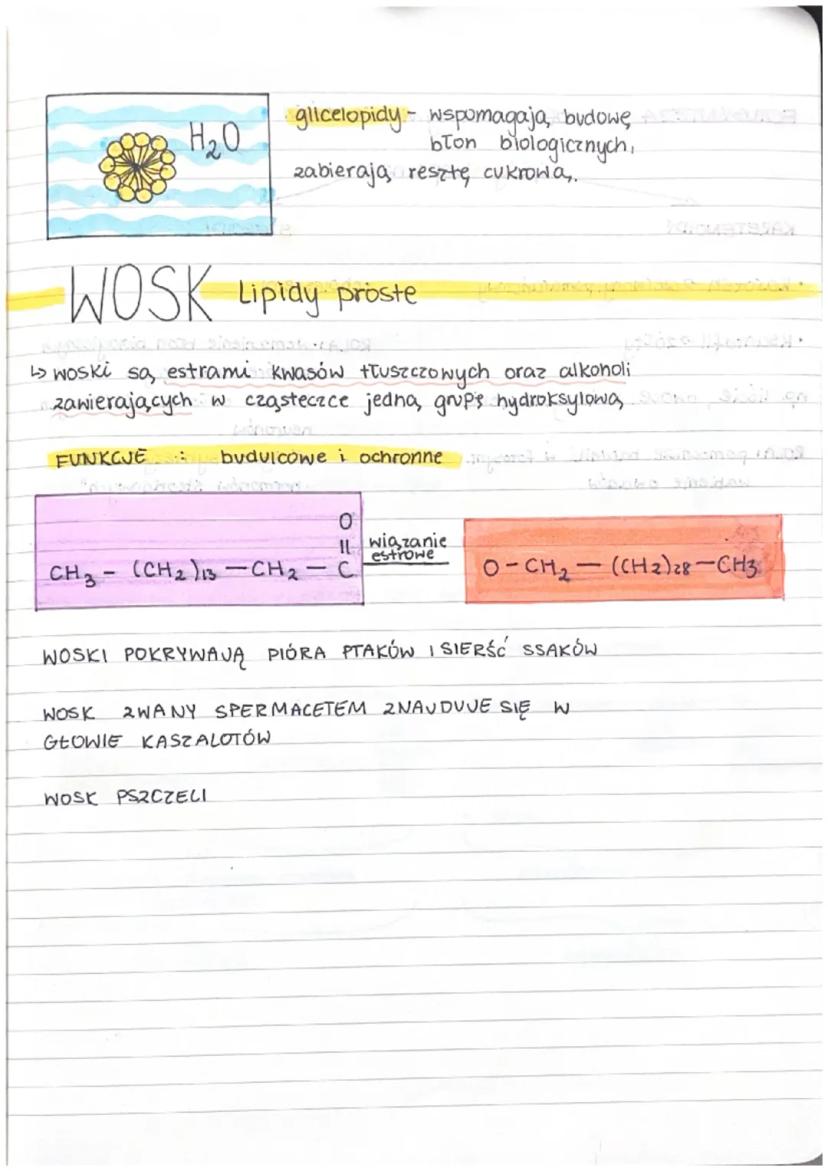 H₂O
glicelopidy - wspomagają budowę
błon biologicznych,
zabierają resztę cukrową.
WOSK Lipidy proste
↳ woski są estrami kwasów tłuszczowych oraz alkoholi
zawierających w cząsteczce jedną grupę hydroksylową
FUNKCJE : budulcowe i ochronne
O
||
CH₃ - (CH₂)₁₃ - CH₂ - C
wiązanie
estrowe
O - CH₂ - (CH₂)₂₈ - CH₃
WOSKI POKRYWAJĄ PIÓRA PTAKÓW I SIERŚĆ SSAKÓW
WOSK ZWANY SPERMACETEM ZNAJDUJE SIĘ W
GŁOWIE KASZALOTÓW
WOSK PSZCZELI